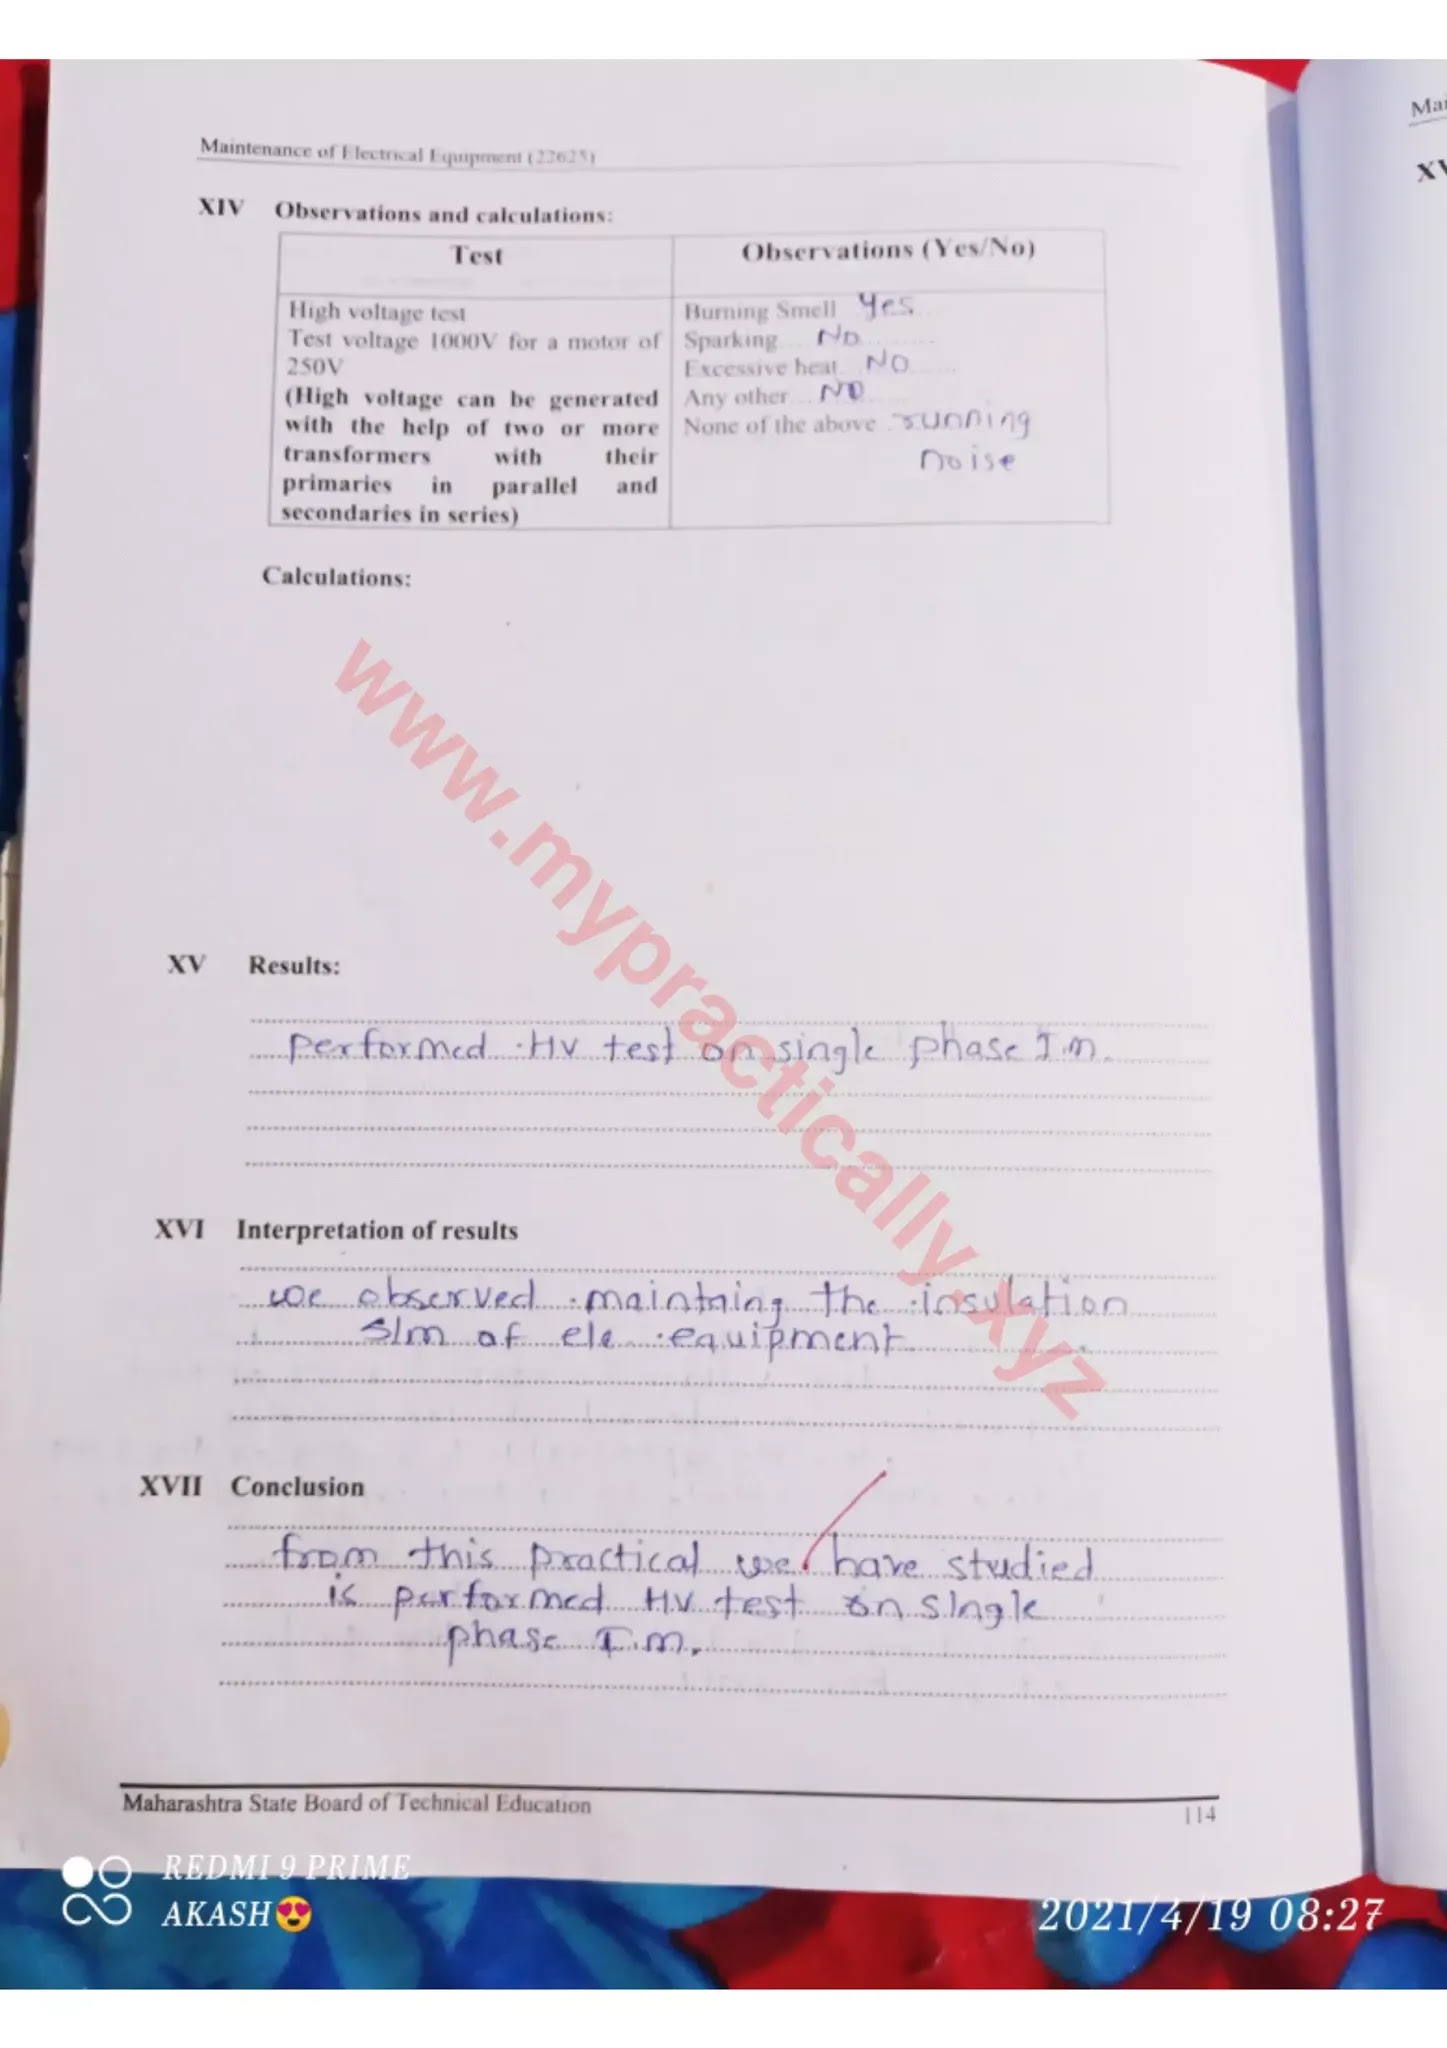 Maintenance of Electrical Equipment (22625)
XIV Observations and calculations:
Test
Observations (Yes/No)
High voltage test
Test voltage 1000V for a motor of
250V
(High voltage can be generated
with the help of two or more
transformers with their
primaries in parallel and
secondaries in series)
Burning Smell Yes
Sparking No
Excessive heat NO
Any other NO
None of the above running
noise
Calculations:
XV Results:
performed HV test on single phase I.m.
XVI Interpretation of results
we observed maintaing the insulation
S/m of ele equipment.
XVII Conclusion
from this practical we have studied
is performed HV test on single
phase I.m.
Maharashtra State Board of Technical Education
114
www.mypractically.xyz
REDMI 9 PRIME
AKASH😍
2021/4/19 08:27
Mai
XV